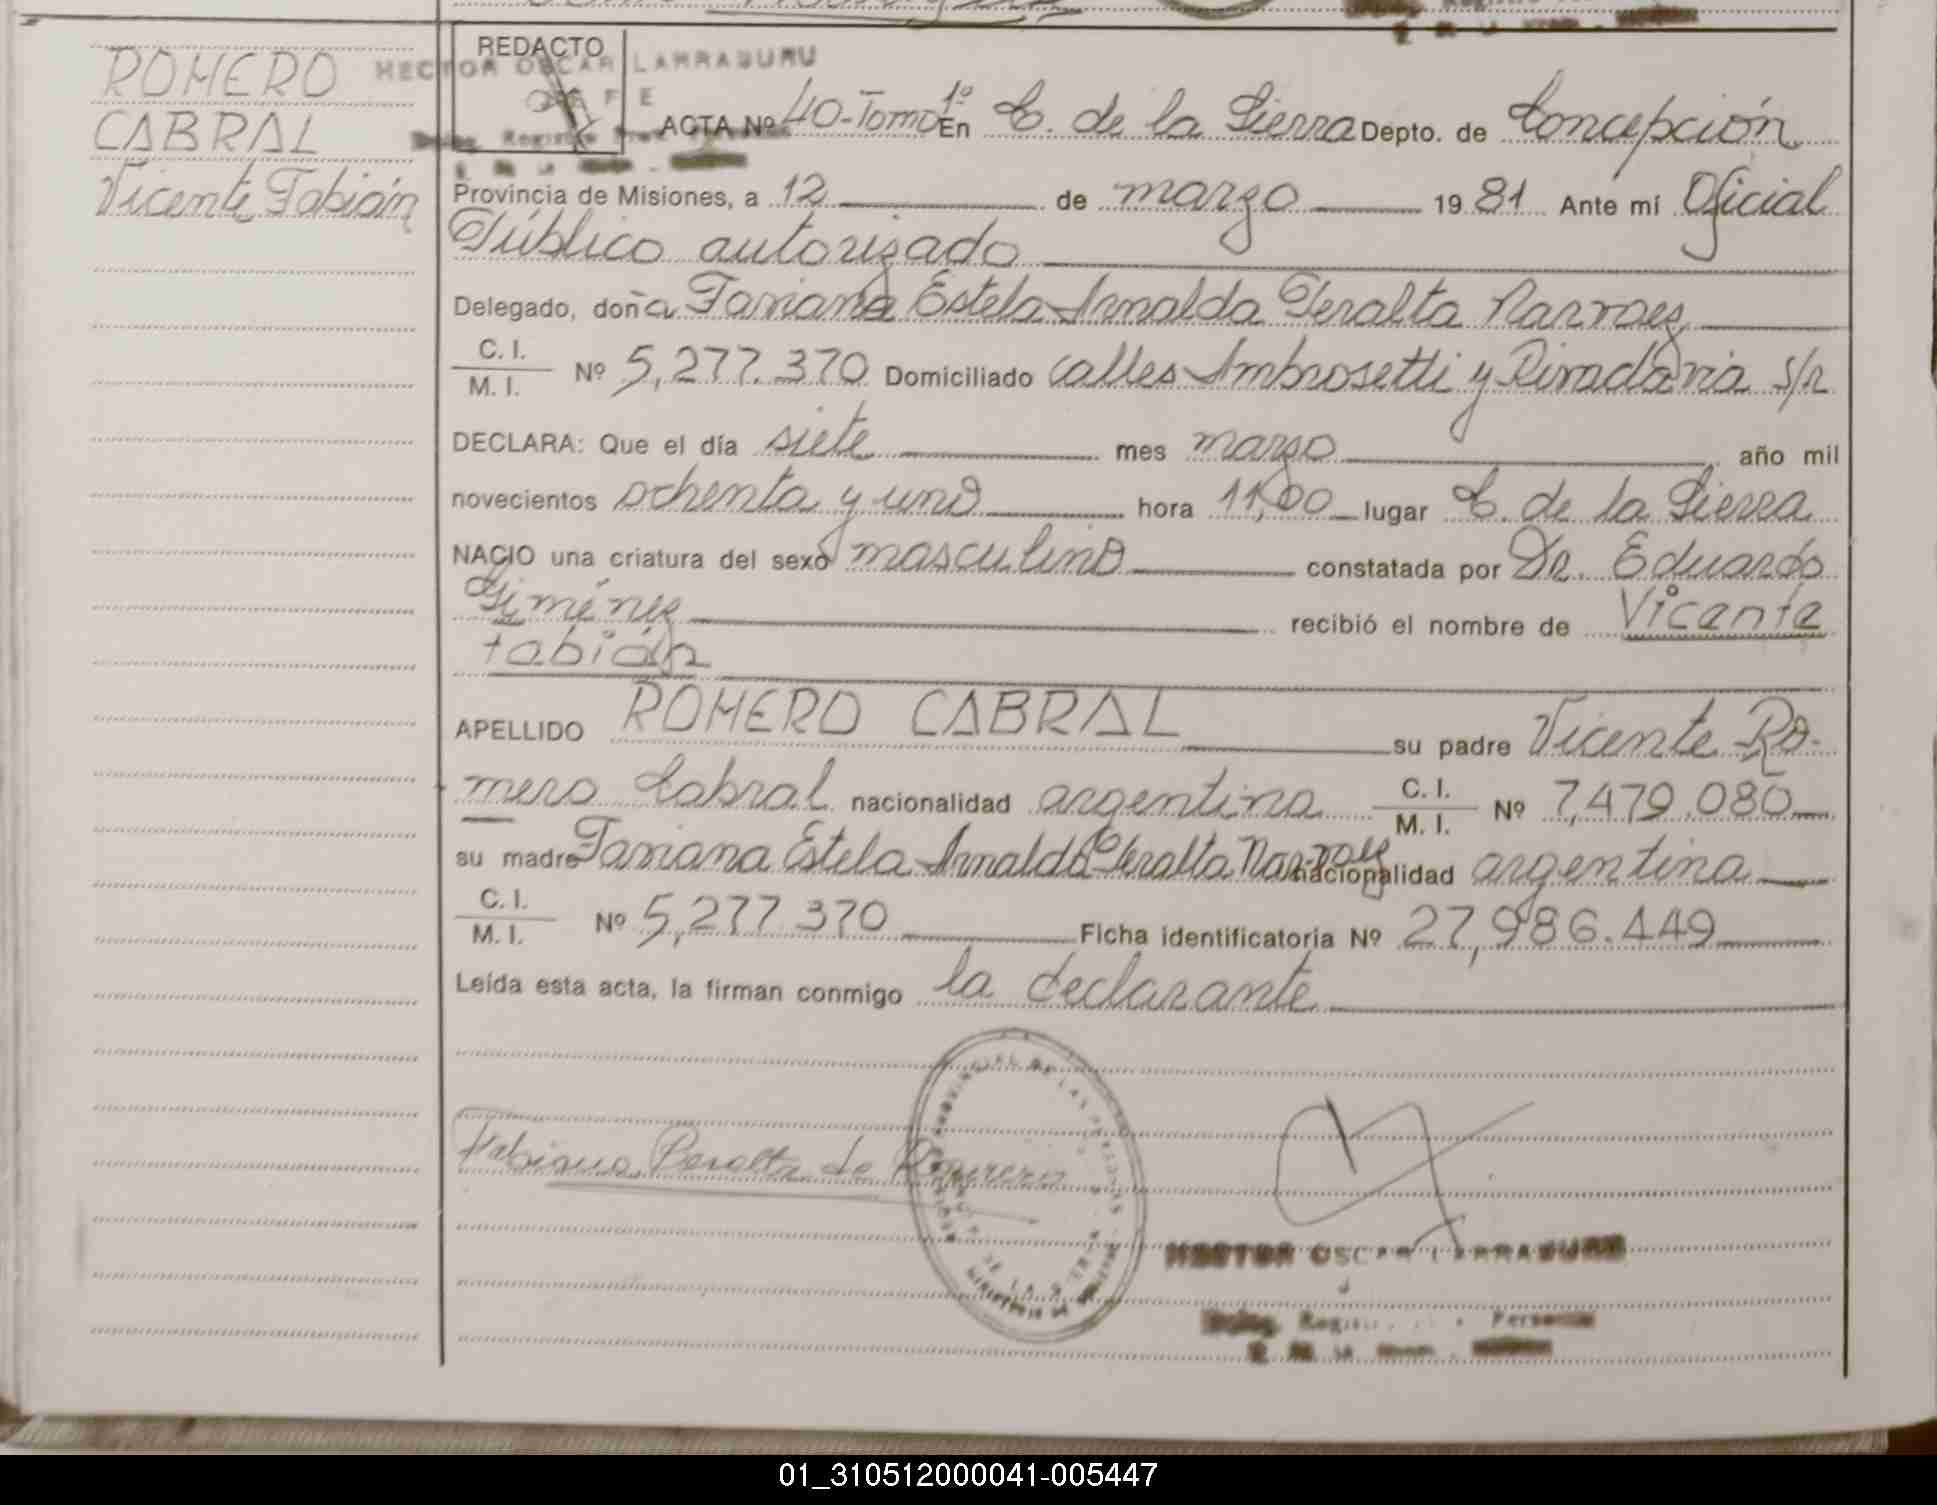 ROMERO
CABRAL
Vicente Fabián
REDACTO
HECTOR OSCAR LARRABURU
JEFE
ACTA Nº 40-Tomo 1º En C. de la Sierra Depto. de Concepción
Provincia de Misiones, a 12 de marzo 1981 Ante mí Oficial
Público autorizado
Delegado, doña Faviana Estela Arnalda Peralta Narvaez
C. I.
M. I. Nº 5,277.370 Domiciliado calles Ambrosetti y Rivadavia s/n
DECLARA: Que el día siete mes marzo año mil
novecientos ochenta y uno hora 11,00 lugar C. de la Sierra
NACIO una criatura del sexo masculino constatada por Dr. Eduardo
Giménez recibió el nombre de Vicente
Fabián
APELLIDO ROMERO CABRAL su padre Vicente Ro-
mero Cabral nacionalidad argentina C. I. M. I. Nº 7,479.080
su madre Faviana Estela Arnalda Peralta Narvaez nacionalidad argentina
C. I.
M. I. Nº 5,277 370 Ficha identificatoria Nº 27,986.449
Leída esta acta, la firman conmigo la declarante
Fabiana Peralta de Romero
HECTOR OSCAR LARRABURU
01_310512000041-005447